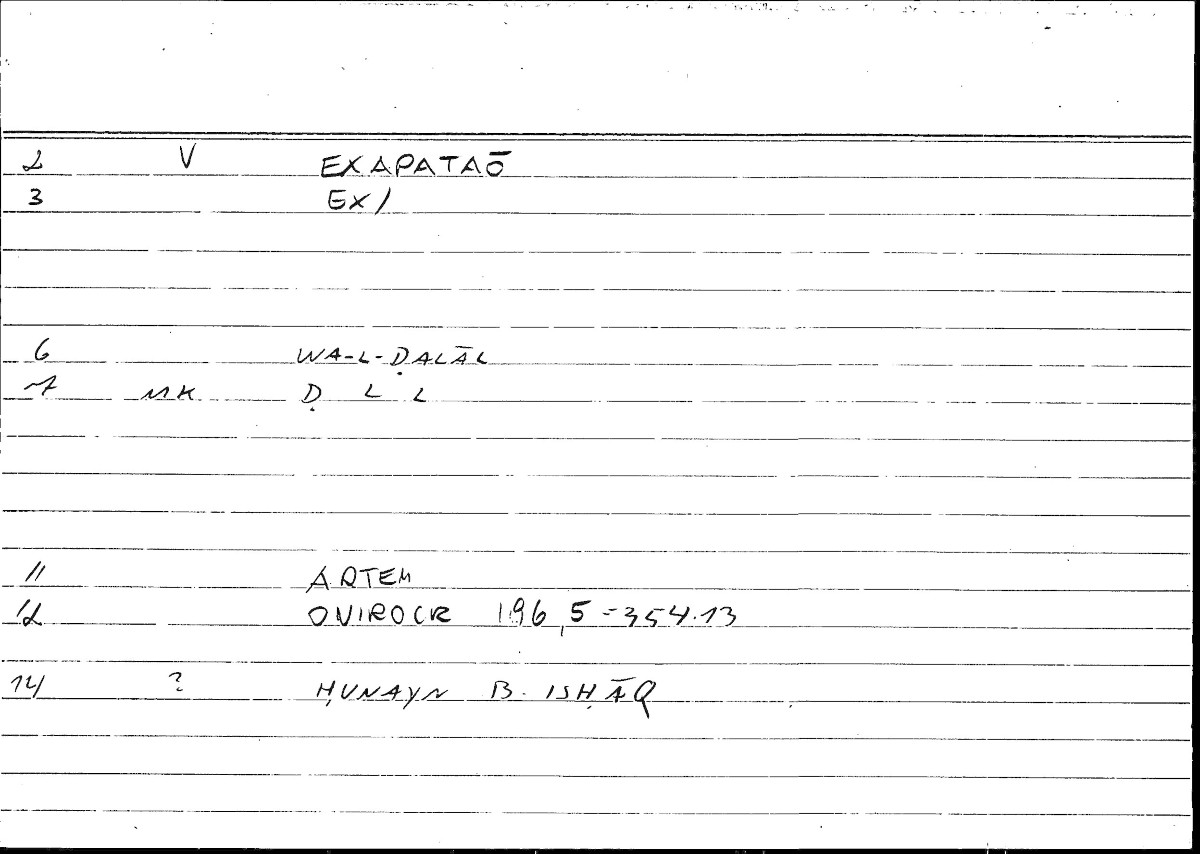 2 V EXAPATAŌ
3 EX/
6 WA-L-ḌALĀL
7 MK Ḍ L L
11 ARTEM
12 ONIROCR 196,5=354.13
14 ? ḤUNAYN B. ISḤĀQ